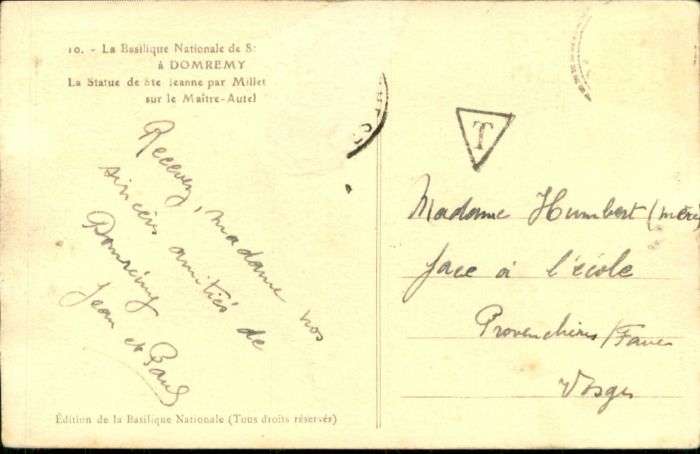 10. - La Basilique Nationale de S
à DOMREMY
La Statue de Ste Jeanne par Millet
sur le Maître-Autel
Recevez, madame nos
sincères amitiés de
Domrémy
Jean et Paul
Édition de la Basilique Nationale (Tous droits réservés)
T
Madame Humbert (mère)
face à l'école
Provenchères / Fave
Vosges